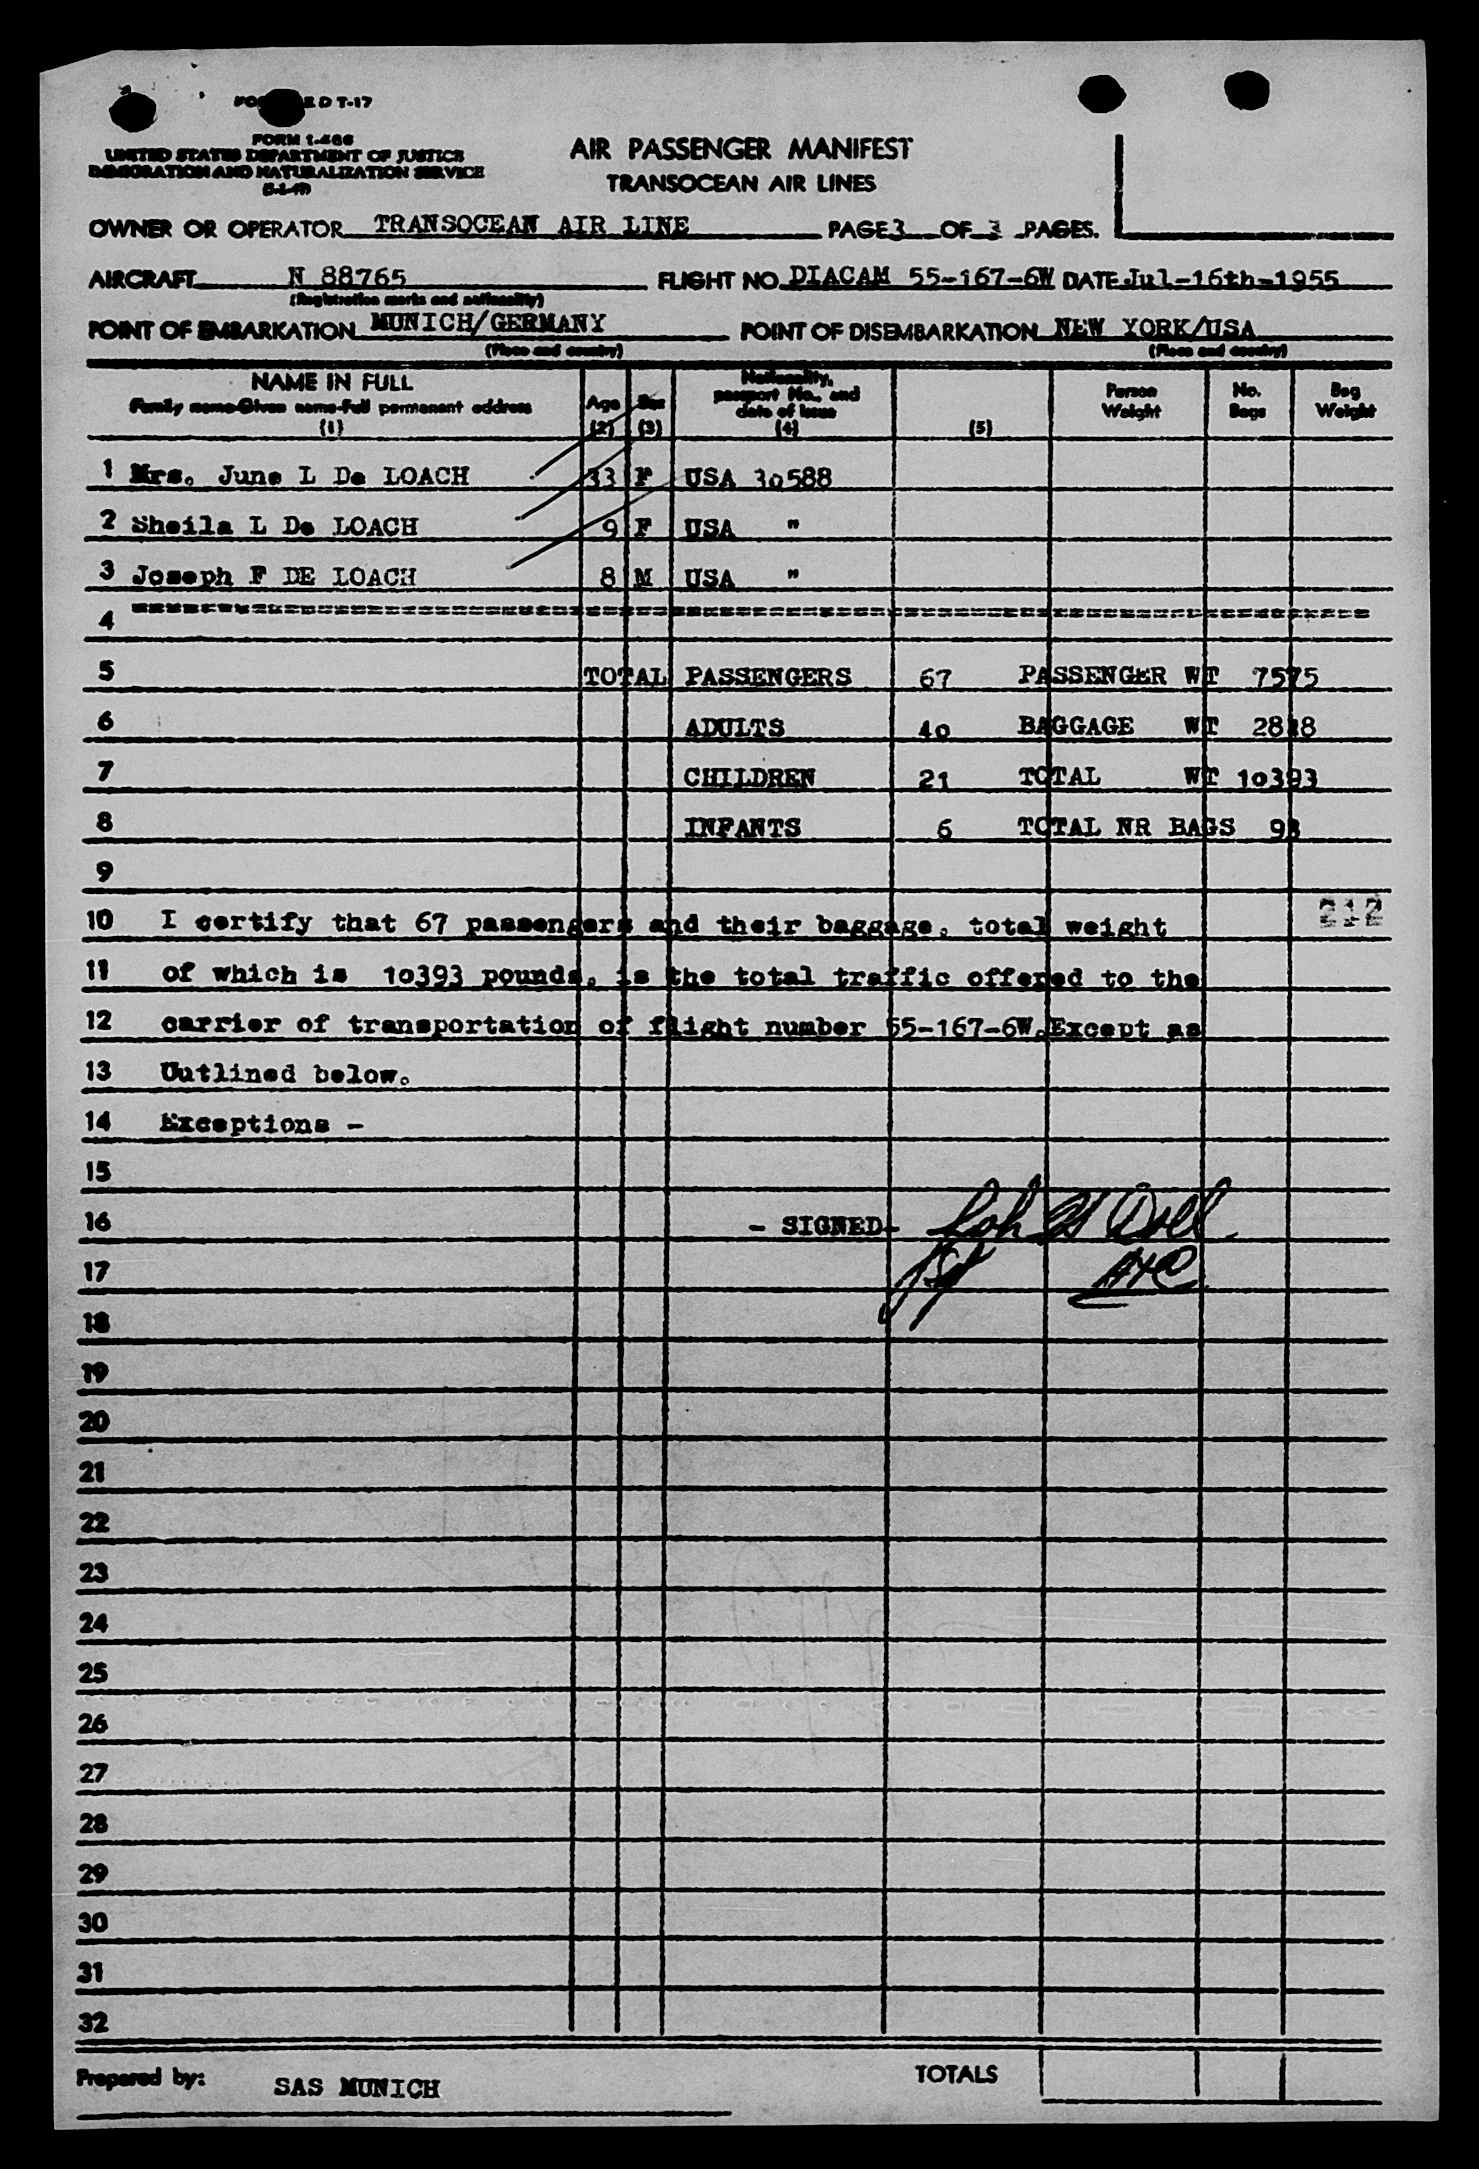 D T-17
FORM I-466
UNITED STATES DEPARTMENT OF JUSTICE
IMMIGRATION AND NATURALIZATION SERVICE
AIR PASSENGER MANIFEST
TRANSOCEAN AIR LINES
OWNER OR OPERATOR TRANSOCEAN AIR LINE PAGE 3 OF 3 PAGES.
AIRCRAFT N 88765 FLIGHT NO. DIACAM 55-167-6W DATE Jul-16th-1955
(Registration marks and nationality)
POINT OF EMBARKATION MUNICH/GERMANY POINT OF DISEMBARKATION NEW YORK/USA
(Place and country) (Place and country)
NAME IN FULL
Family name-Given name-full permanent address
(1)
Age
(2)
Sex
(3)
Nationality,
passport No., and
date of issue
(4)
(5)
Person
Weight
No.
Bags
Bag
Weight
1 Mrs. June L De LOACH 33 F USA 30588
2 Sheila L De LOACH 9 F USA "
3 Joseph F DE LOACH 8 M USA "
4
5 TOTAL PASSENGERS 67 PASSENGER WT 7575
6 ADULTS 40 BAGGAGE WT 2818
7 CHILDREN 21 TOTAL WT 10393
8 INFANTS 6 TOTAL NR BAGS
9
10 I certify that 67 passengers and their baggage, total weight 212
11 of which is 10393 pounds, is the total traffic offered to the
12 carrier of transportation of flight number 55-167-6W.Except as
13 Outlined below.
14 Exceptions -
15
16 - SIGNED-
17
18
19
20
21
22
23
24
25
26
27
28
29
30
31
32
Prepared by: SAS MUNICH TOTALS